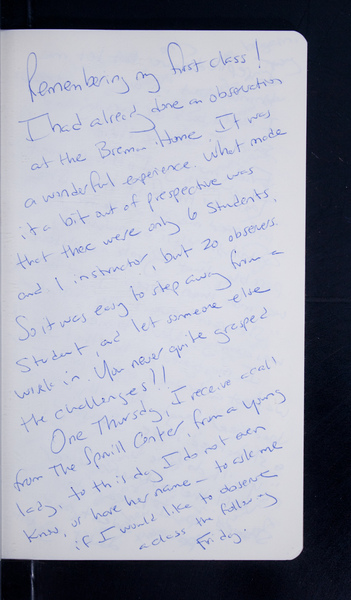 Remembering my first class!
I had already done an observation
at the Breman Home. It was
a wonderful experience. What made
it a bit out of prespective was
that there were only 6 students,
and 1 instructor, but 20 observers.
So it was easy to step away from a
student, and let someone else
work in. You never quite grasped
the challenges!!
One Thursday, I receive a call
from The Spruill Center, from a young
lady, to this day I do not even
know, or have her name - to ask me
if I would like to observe
a class the following
Friday.